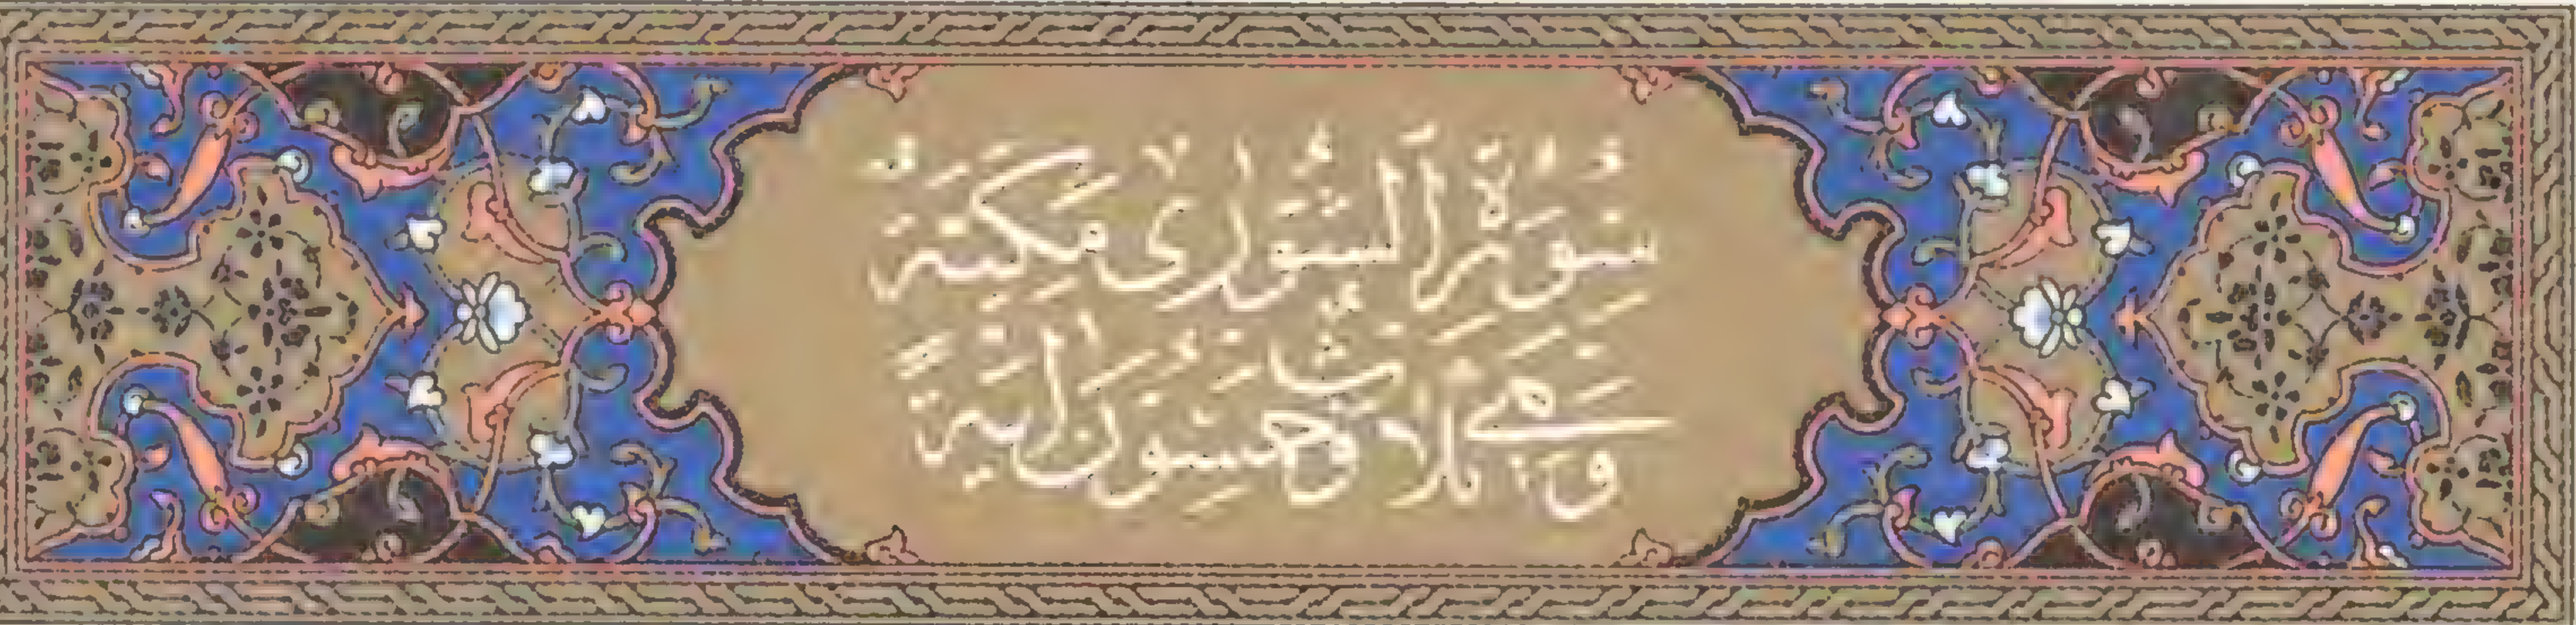 سُورَةُ ٱلشُّورَىٰ مَكِّيَّةٌ
وَهِيَ ثَلَاثٌ وَخَمْسُونَ آيَةً